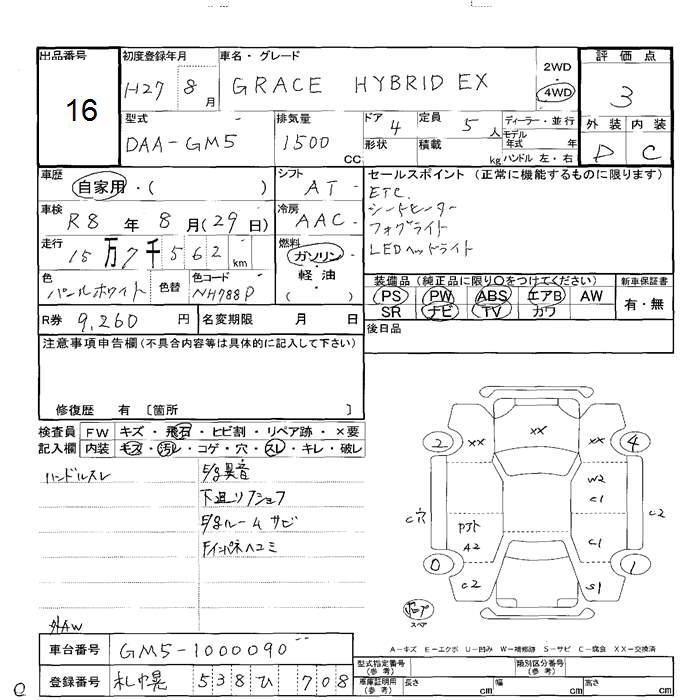 出品番号
16
初度登録年月
H27 8月
車名・グレード
GRACE HYBRID EX
2WD
4WD
評価点
3
外装 内装
D C
型式
DAA-GM5
排気量
1500 CC
ドア 4
形状
定員 5人
積載 kg
ディーラー・並行
モデル
年式 年
ハンドル 左・右
車歴
自家用・( )
シフト
AT
車検
R8 年 8 月(29日)
冷房
AAC
走行
15万7千562km
燃料
ガソリン・
軽油
( )
色
パールホワイト
色替
色コード
NH788P
セールスポイント (正常に機能するものに限ります)
ETC.
シートヒーター
フォグライト
LEDヘッドライト
装備品 (純正品に限り○をつけてください)
PS PW ABS エアB AW
SR ナビ TV カワ
新車保証書
有・無
R券 9,260 円
名変期限 月 日
後日品
注意事項申告欄 (不具合内容等は具体的に記入して下さい)
修復歴 有 〔箇所 〕
検査員 FW キズ・飛石・ヒビ割・リペア跡・×要
記入欄 内装 モス・汚レ・コゲ・穴・スレ・キレ・破レ
ハンドルスレ
異音
下廻り
ルームサビ
インパネヘコミ
外AW
2 XX XX XX 4
W2
C1
C穴 C2
A2 C1
0 C2 S1 1
スペア
A-キズ E-エクボ U-凹み W-補修跡 S-サビ C-腐食 XX-交換済
車台番号 GM5-1000090
型式指定番号 (参考)
類別区分番号 (参考)
登録番号 札幌 538 ひ 708
車庫証明用 (参考) 長さ cm 幅 cm 高さ cm